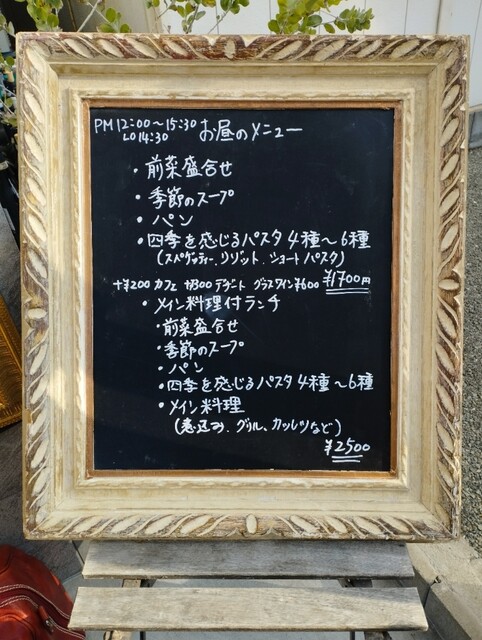 PM 12:00～15:30 お昼のメニュー
LO 14:30
・前菜盛合せ
・季節のスープ
・パン
・四季を感じるパスタ 4種～6種
(スパゲッティー、リゾット、ショートパスタ)
¥1700円
+¥200 カフェ +¥300 デザート グラスワイン¥600
・メイン料理付ランチ
・前菜盛合せ
・季節のスープ
・パン
・四季を感じるパスタ 4種～6種
・メイン料理
(煮込み、グリル、カツレツなど)
¥2500